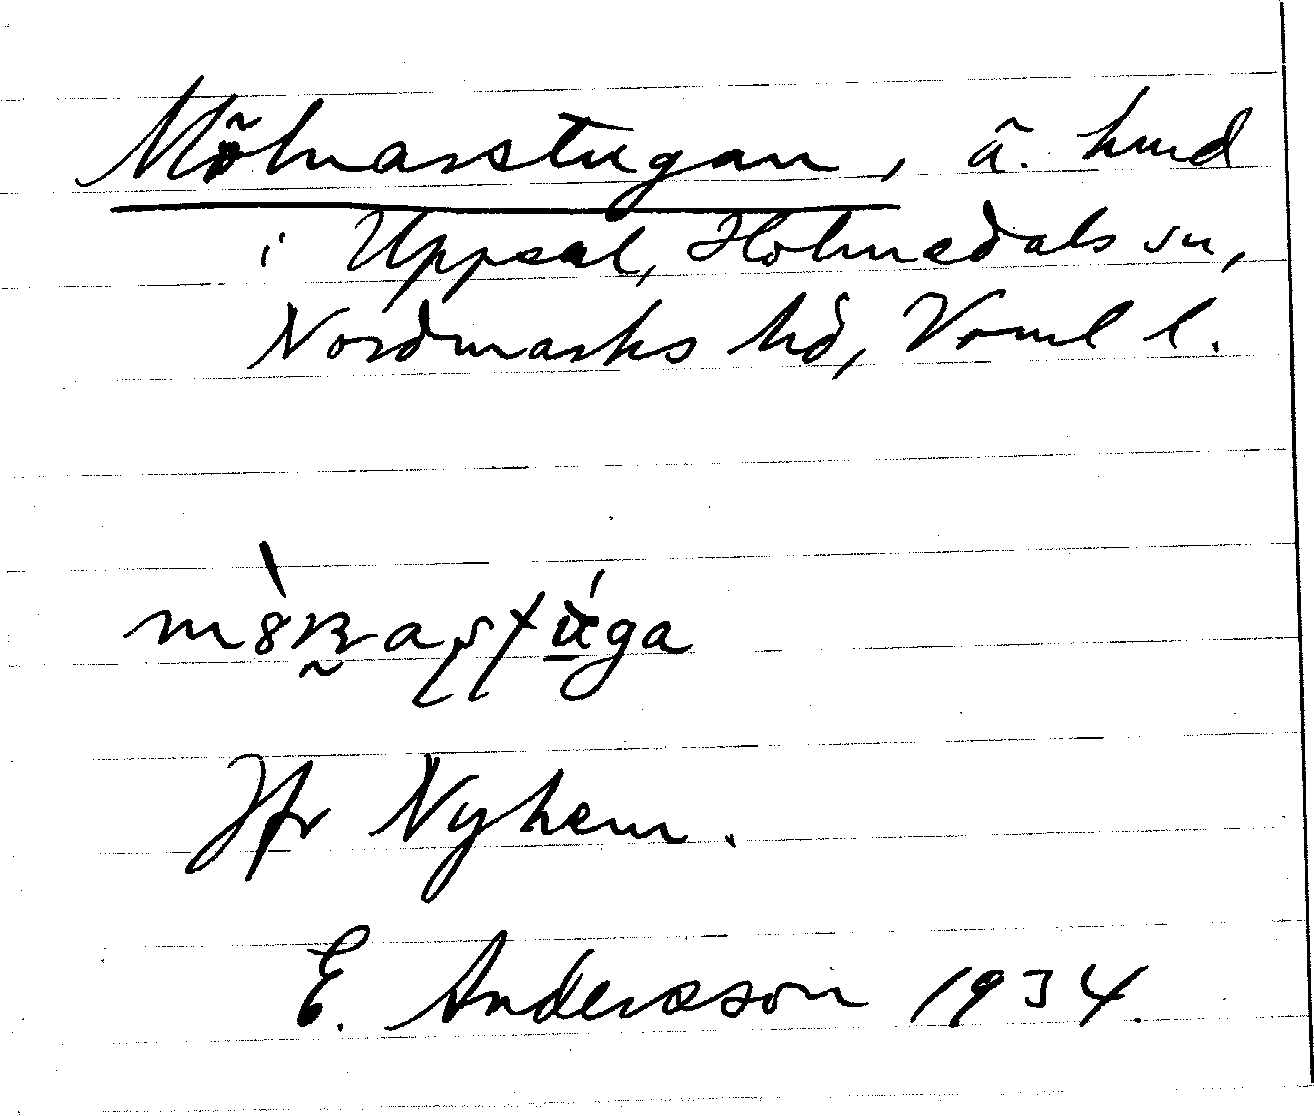 Mölnarstugan, ä. hmd
i Uppsal, Holmedals sn,
Nordmarks hd, Värml l.
Jfr Nyhem.
E. Andersson 1934.